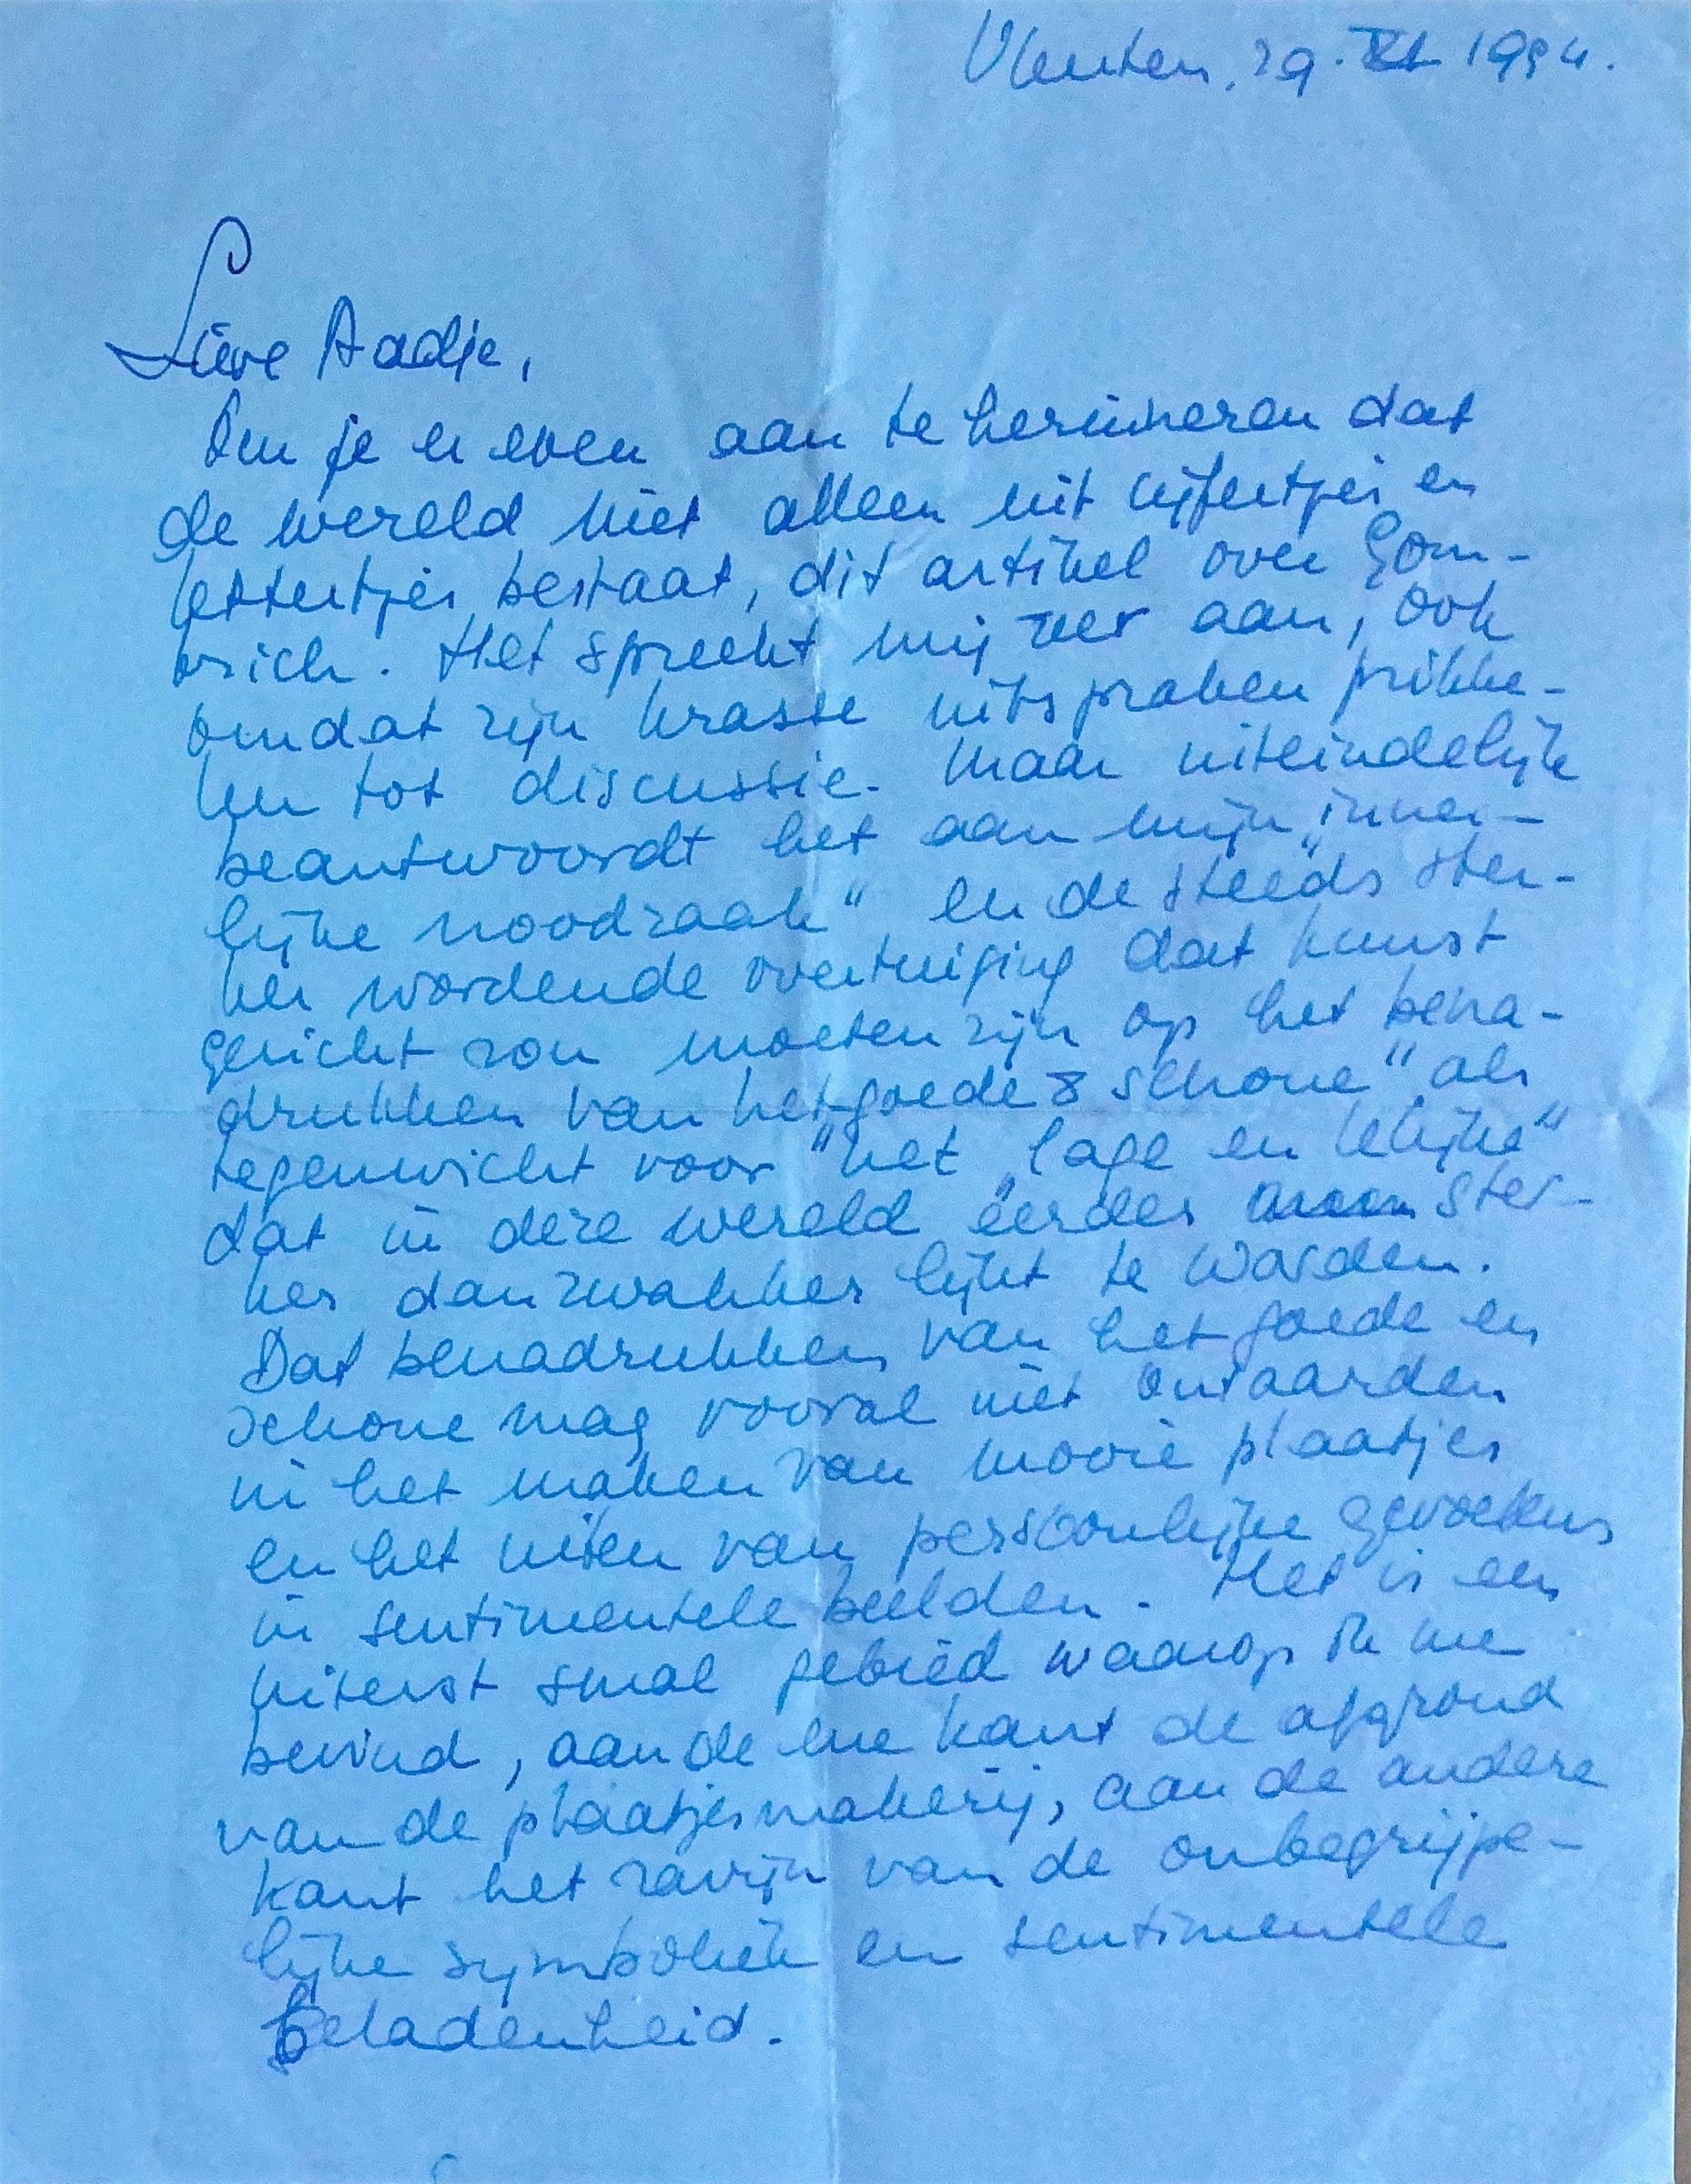 Vleuten, 29. XI 1994.
Lieve Aadje,
Om je er even aan te herinneren dat
de wereld niet alleen uit cijfertjes en
lettertjes bestaat, dit artikel over Gom-
brich. Het spreekt mij zeer aan, ook
omdat zijn krasse uitspraken prikke-
len tot discussie. Maar uiteindelijk
beantwoordt het aan mijn „inner-
lijke noodzaak" en de steeds ster-
ker wordende overtuiging dat kunst
gericht zou moeten zijn op het bena-
drukken van het „goede & schone" als
tegenwicht voor het „lage en lelijke"
dat in deze wereld eerder ster-
ker dan zwakker lijkt te worden.
Dat benadrukken van het goede en
schone mag vooral niet ontaarden
in het maken van mooie plaatjes
en het uiten van persoonlijke gevoelens
in sentimentele beelden. Het is een
uiterst smal gebied waarop ik me
bevind, aan de ene kant de afgrond
van de plaatjesmakerij, aan de andere
kant het ravijn van de onbegrijpe-
lijke symboliek en sentimentele
beladenheid.